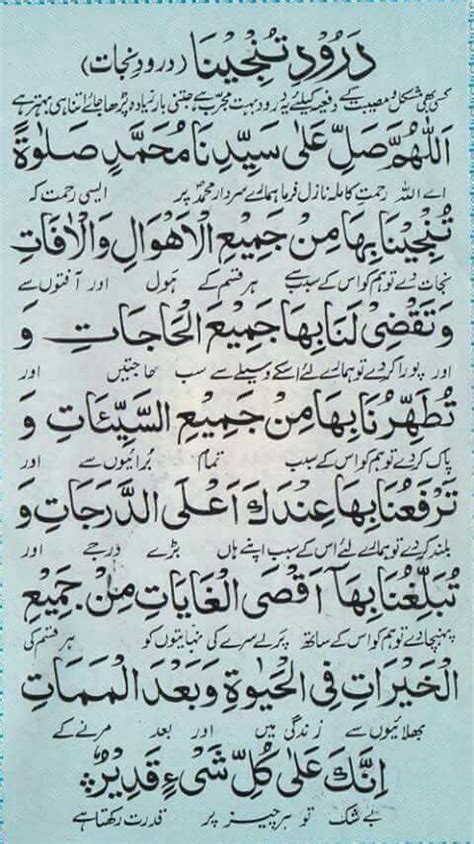 دَرُوْدِ تُنْجِيْنَا (درودِ نجات)
کسی بھی مشکل و مصیبت کے دفعیہ کیلئے یہ درود بہت مجرب ہے جتنی بار زیادہ پڑھا جائے اتنا ہی بہتر ہے
اَللّٰهُمَّ صَلِّ عَلٰى سَيِّدِنَا مُحَمَّدٍ صَلٰوةً
اے اللہ رحمتِ کاملہ نازل فرما ہمارے سردار محمدؐ پر ایسی رحمت کہ
تُنْجِيْنَا بِهَا مِنْ جَمِيْعِ الْاَهْوَالِ وَالْاٰفَاتِ
نجات دے تو ہم کو اس کے سبب سے ہر قسم کے ہول اور آفتوں سے
وَتَقْضِىْ لَنَا بِهَا جَمِيْعَ الْحَاجَاتِ وَ
اور پورا کر دے تو ہمارے لئے اسکے وسیلے سے سب حاجتیں اور
تُطَهِّرُنَا بِهَا مِنْ جَمِيْعِ السَّيِّئَاتِ وَ
پاک کر دے تو ہم کو اس کے سبب تمام بُرائیوں سے اور
تَرْفَعُنَا بِهَا عِنْدَكَ اَعْلَى الدَّرَجَاتِ وَ
بلند کر دے تو ہمارے لئے اس کے سبب اپنے ہاں بڑے درجے اور
تُبَلِّغُنَا بِهَآ اَقْصَى الْغَايَاتِ مِنْ جَمِيْعِ
پہنچا دے تو ہم کو اس کے ساتھ پرلے سرے کی نہایتوں کو ہر قسم کی
الْخَيْرَاتِ فِى الْحَيٰوةِ وَبَعْدَ الْمَمَاتِ
بھلائیوں سے زندگی میں اور بعد مرنے کے
اِنَّكَ عَلٰى كُلِّ شَىْءٍ قَدِيْرٌ
بے شک تو ہر چیز پر قدرت رکھتا ہے